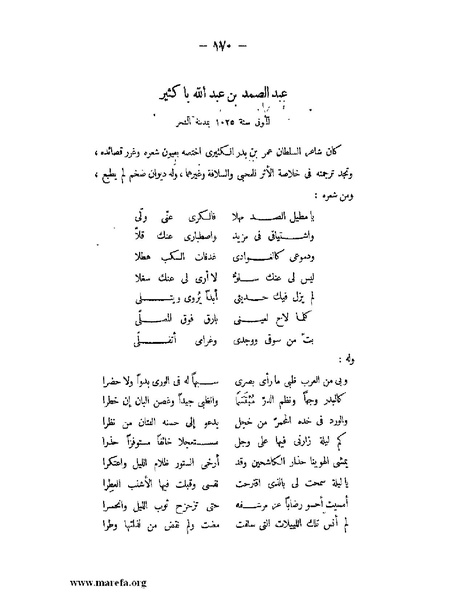 — ١٨٧ —
عبد الصمد بن عبد الله با كثير
المتوفى سنة ١٠٢٥ بمدينة الشحر
كان شاعر السلطان عمر بن بدر الكثيرى اختصه بعيون شعره وغرر قصائده ،
وتجد ترجمته فى خلاصة الأثر للمحبى والسلافة وغيرهما ، وله ديوان ضخم لم يطبع ،
ومن شعره :
يا مطيل الصد مهلا فالكرى عنى ولّى
واشتياقى فى مزيد واصطبارى عنك قلّا
ودموعى كالغوادى غدقات السكب هطلا
ليس لى عنك سلوّ لا أرى لى عنك سغلا
لم يزل فيك حديثى أبداً يُروى ويتلى
كلما لاح لعينى بارق فوق المصلّى
بتّ من سوقى ووجدى وغرامى أتقلّى
وله :
وبى من العرب ظبى ما رأى بصرى شبهاً له فى الورى بدواً ولا حضرا
كالبدر وجهاً ونظم الدرّ مبتسما والظبى جيداً وغصن البان إن خطرا
والورد فى خده المحمرّ من خجل يدعو إلى حسنه الفتان من نظرا
كم ليلة زارنى فيها على وجل مستعجلا خائفاً مستوفزاً حذرا
يمشى الهوينا حذار الكاشحين وقد أرخى الستور ظلام الليل واعتكرا
يا ليلة سمحت لى بالذى اقترحت نفسى وقبلت فيها الأشنب العطرا
أمسيت أحسو رضاباً عن مرشفه حتى تزحزح ثوب الليل وانحسرا
لم أنس تلك اللييلات التى سلفت مضت ولم نقض من لذاتها وطرا
www.marefa.org